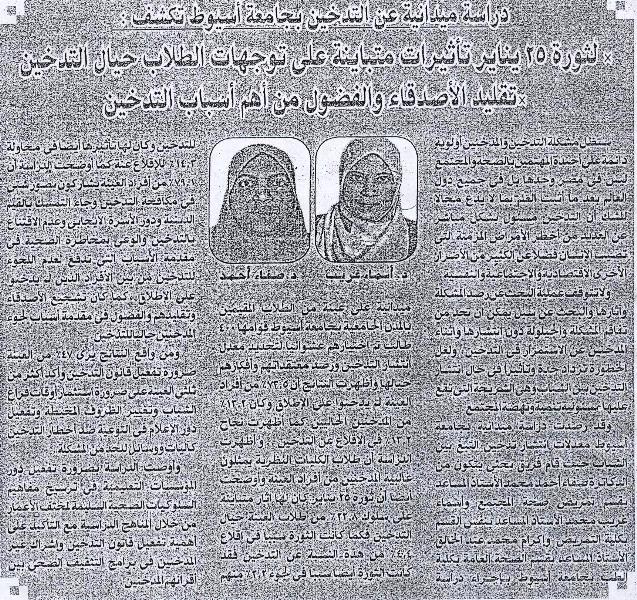 دراسة ميدانية عن التدخين بجامعة أسيوط تكشف :
× لثورة ٢٥ يناير تأثيرات متباينة على توجهات الطلاب حيال التدخين
× تقليد الأصدقاء والفضول من أهم أسباب التدخين
ستظل مشكلة التدخين والمدخنين أولوية
دائمة على أجندة المهتمين بالصحة والمجتمع
ليس فى مصر وحدها بل فى جميع دول
العالم بعد ما أثبت العلم بما لا يدع مجالا
للشك أن التدخين مسئول بشكل مباشر
عن العديد من أخطر الأمراض المزمنة التى
تصيب الإنسان فضلا عن الكثير من الأضرار
الأخرى الاقتصادية والاجتماعية والنفسية
ولا تتوقف عملية البحث عن رصد المشكلة
وآثارها والبحث عن سبل يمكن أن تحد من
تفاقم المشكلة والحيلولة دون انتشارها وإثناء
المدخنين عن الاستمرار فى التدخين ولعل
الخطورة تزداد حدة وتأثيرا فى حال انتشار
التدخين بين الشباب وهى الشريحة التى يقع
عليها مسئولية تنمية ونهضة المجتمع
وقد رصدت دراسة ميدانية بجامعة
أسيوط معدلات انتشار تدخين التبغ بين
الشباب حيث قام فريق بحثى يتكون من
الدكاترة صفاء أحمد محمد الأستاذ المساعد
لقسم تمريض صحة المجتمع وأسماء
غريب محمد الأستاذ المساعد بنفس القسم
بكلية التمريض وإكرام محمد عبد الخالق
الأستاذ المساعد بقسم الصحة العامة بكلية
الطب بجامعة أسيوط بإجراء دراسة
د. أسماء غريب
د. صفاء أحمد
ميدانية على عينة من الطلاب المقيمين
بالمدن الجامعية بجامعة أسيوط قوامها ٤٠٠
طالب تم اختيارهم عشوائيا لتحديد معدل
انتشار التدخين ورصد معتقداتهم وأفكارهم
حيالها وأظهرت النتائج أن ٧٣.٥٪ من أفراد
العينة لم يدخنوا على الإطلاق وكان ١٣.٢٪
من المدخنين الحاليين كما أظهرت نجاح
١٣.٢٪ فى الإقلاع عن التدخين وأظهرت
الدراسة أن طلاب الكليات النظرية يمثلون
غالبية المدخنين من أفراد العينة وأوضحت
أيضا أن ثورة ٢٥ يناير كان لها آثار متباينة
على سلوك ٢٢٪ من طلاب العينة حيال
التدخين فكما كانت الثورة سببا فى إقلاع
من هذه العينة عن التدخين فقد
كانت الثورة أيضا سببا فى لجوء منهم
للتدخين وكان لها تأثيرها أيضا فى محاولة
١٤.٣٪ للإقلاع عنه كما أوضحت الدراسة أن
من أفراد العينة يشاركون بصور شتى
فى مكافحة التدخين وجاء التمسك بالقيم
الدينية ودور الأسرة الإيجابى وعدم الاقتناع
بالتدخين والوعى بمخاطره الصحية فى
مقدمة الأسباب التى تدفع لعدم اللجوء
للتدخين من بين الأفراد الذين لم يدخنوا
على الإطلاق كما كان تشجيع الأصدقاء
وتقليدهم والفضول فى مقدمة أسباب لجوء
المدخنين حاليا للتدخين
ومن واقع النتائج يرى ٤٧٪ من العينة
ضرورة تفعيل قانون التدخين وأكد أكثر من
ثلثى العينة على ضرورة استثمار أوقات فراغ
الشباب وتغيير الظروف المحيطة وتفعيل
دور الإعلام فى التوعية ضد أخطار التدخين
كآليات ووسائل للحد من المشكلة
وأوصت الدراسة بضرورة تفعيل دور
المؤسسات التعليمية فى ترسيخ مفاهيم
السلوكيات الصحية السليمة لمختلف الأعمار
من خلال المناهج الدراسية مع التأكيد على
أهمية تفعيل قانون التدخين وإشراك غير
المدخنين فى برامج التثقيف الصحى بين
أقرانهم المدخنين